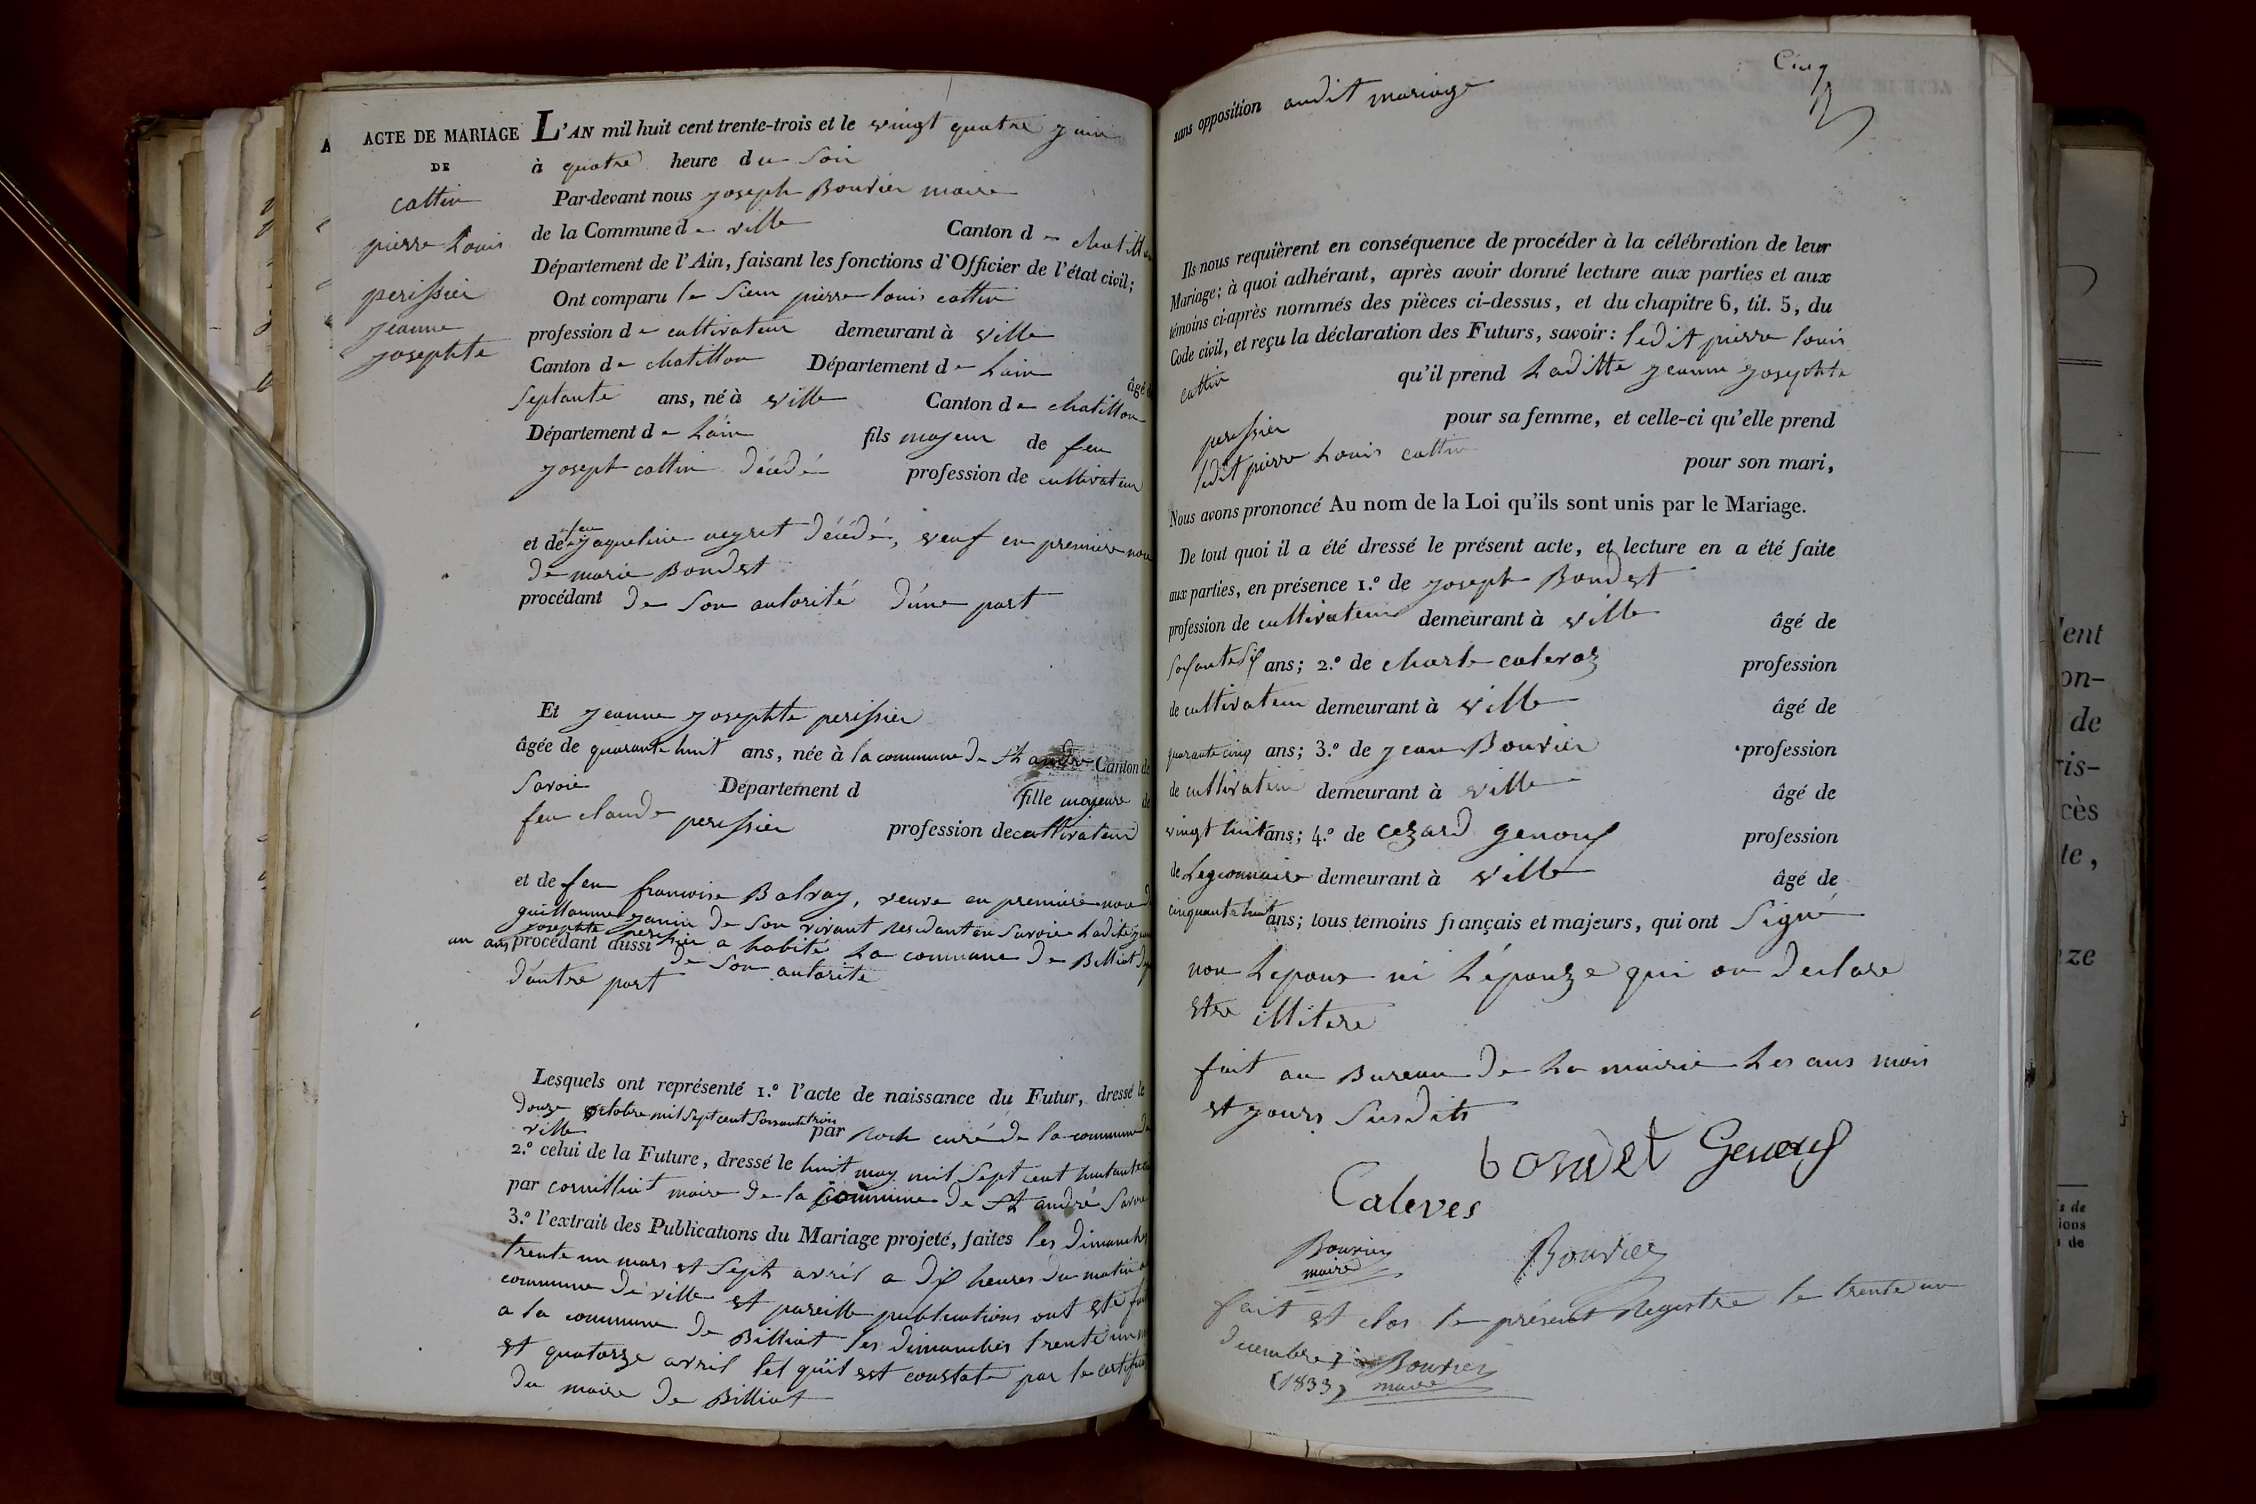 ACTE DE MARIAGE
DE
Cattin
pierre Louis
perissier
jeanne
josephte
L'AN mil huit cent trente-trois et le vingt quatre juin
à quatre heure du soir
Par-devant nous joseph Bouvier maire
de la Commune de ville Canton de chatillon
Département de l'Ain, faisant les fonctions d'Officier de l'état civil;
Ont comparu le Sieur pierre louis cattin
profession de cultivateur demeurant à ville
Canton de chatillon Département de Lain âgé de
septante ans, né à ville Canton de chatillon
Département de Lain fils majeur de feu
joseph cattin décédé profession de cultivateur
et de feu jaqueline veyret décédé, veuf en premiere noce
de marie Bondet
procédant de son autorité d'une part
Et jeanne josephte perissier
âgée de quarante huit ans, née à la commune de St andré Canton de
Savoie Département d fille majeure de
feu claude perissier profession de cultivateur
et de feu francoise Balray, veuve en premiere noce de
guillaume janin de son vivant residant en Savoie Ladite jeanne
josephte perissier a habité La commune de Billiat depuis
un ans procédant aussi de son autorité
d'autre part
Lesquels ont représenté 1.º l'acte de naissance du Futur, dressé le
douze octobre mil sept cent soixante trois par Roch curé de la commune de
ville
2.º celui de la Future, dressé le huit may mil sept cent huitante
par cornilliat maire de la commune de St andré Savoie
3.º l'extrait des Publications du Mariage projeté, faites les dimanches
trente un mars et sept avril a dix heures du matin a
commune de ville et pareille publications ont été fait
a la commune de Billiat les dimanches trente un m
et quatorze avril tel quil est constate par le certificat
du maire de Billiat
Cinq
sans opposition audit mariage
Ils nous requièrent en conséquence de procéder à la célébration de leur
Mariage; à quoi adhérant, après avoir donné lecture aux parties et aux
témoins ci-après nommés des pièces ci-dessus, et du chapitre 6, tit. 5, du
Code civil, et reçu la déclaration des Futurs, savoir: ledit pierre louis
cattin qu'il prend Laditte jeanne josephte
perissier pour sa femme, et celle-ci qu'elle prend
ledit pierre Louis cattin pour son mari,
Nous avons prononcé Au nom de la Loi qu'ils sont unis par le Mariage.
De tout quoi il a été dressé le présent acte, et lecture en a été faite
aux parties, en présence 1.º de joseph Bondet
profession de cultivateur demeurant à ville âgé de
soixante six ans; 2.º de charle calevaz profession
de cultivateur demeurant à ville âgé de
quarante cinq ans; 3.º de jean Bouvier profession
de cultivateur demeurant à ville âgé de
vingt huit ans; 4.º de cezard genoux profession
de Legionnaire demeurant à ville âgé de
cinquante huit ans; tous témoins français et majeurs, qui ont signé
non Lepoux ni Lépouze qui on declare
etre illitere
fait au Bureau de La mairie Les ans mois
et jours susdits
bondet Genoux
Caleves
Bouvier
maire
Bouvier
fait et clos le présent Registre le trente un
decembre
(1833) Bouvier
maire